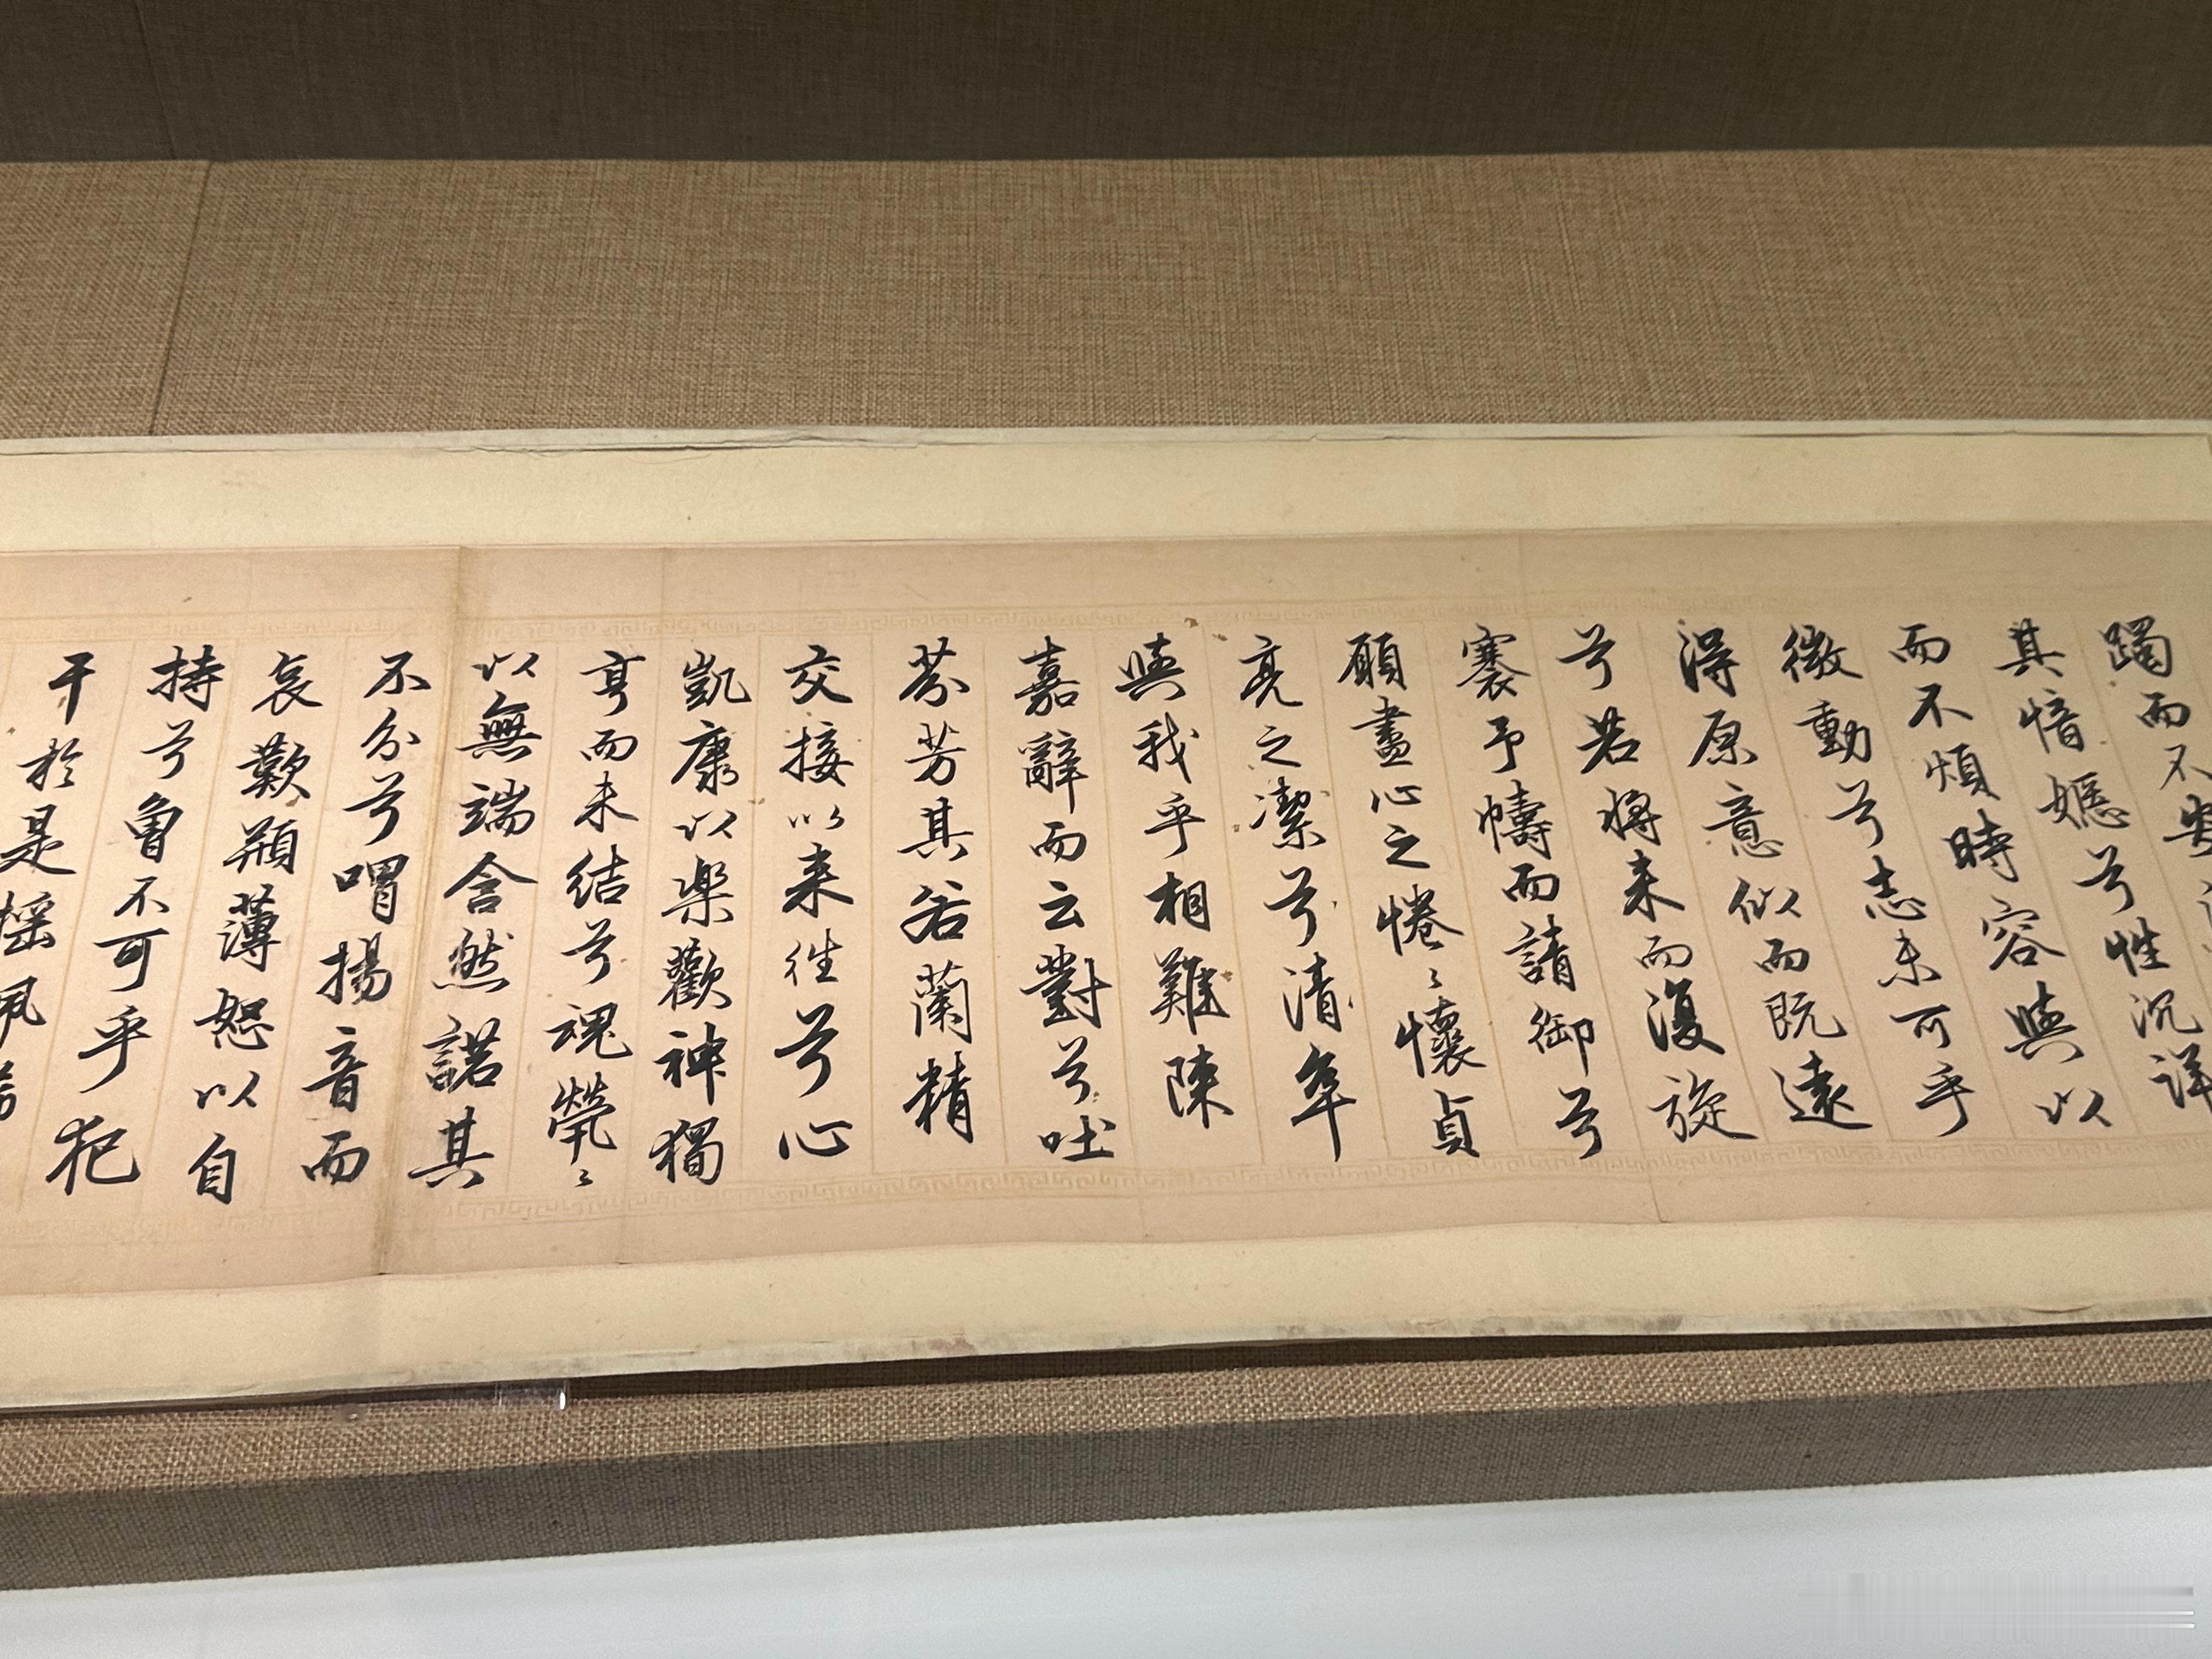 躅而不安
其愔嫕兮性沉詳
而不煩時容與以
微動兮志未可乎
得原意似而既遠
兮若將来而復旋
褰予幬而請御兮
願盡心之惓〻懷貞
亮之潔清兮卒
與我乎相難陳
嘉辭而云對兮吐
芬芳其若蘭精
交接以来往兮心
凱康以樂歡神獨
亨而未結兮魂煢〻
以無端含然諾其
不分兮喟揚音而
哀歎頩薄怒以自
持兮曾不可乎犯
干於是摇珮